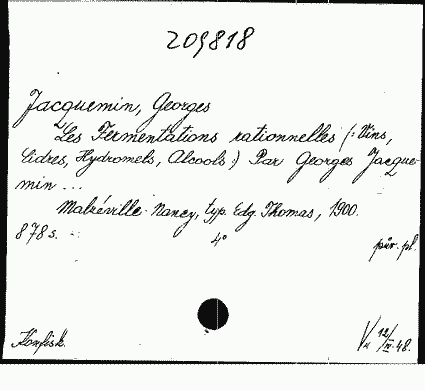 209818
Jacquemin, Georges
Les Fermentations rationnelles (: Vins,
Cidres, Hydromels, Alcools :) Par Georges Jacque-
min ...
Malzéville-Nancy, typ. Edg. Thomas, 1900.
878 s. 4° pův. pl.
Konfisk. V 12/IV 48.